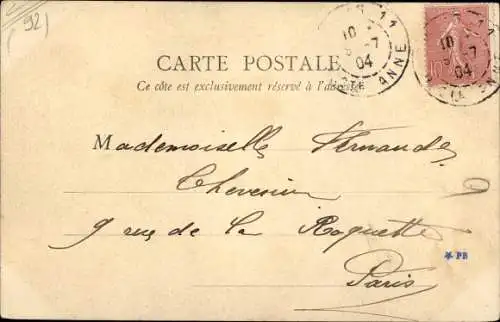 (92)
CARTE POSTALE
Ce côté est exclusivement réservé à l'adresse
10
-7
04
STE ANNE
10
-7
04
Mademoiselle Fernande
Thevenin
9 rue de la Roquette
Paris
PB